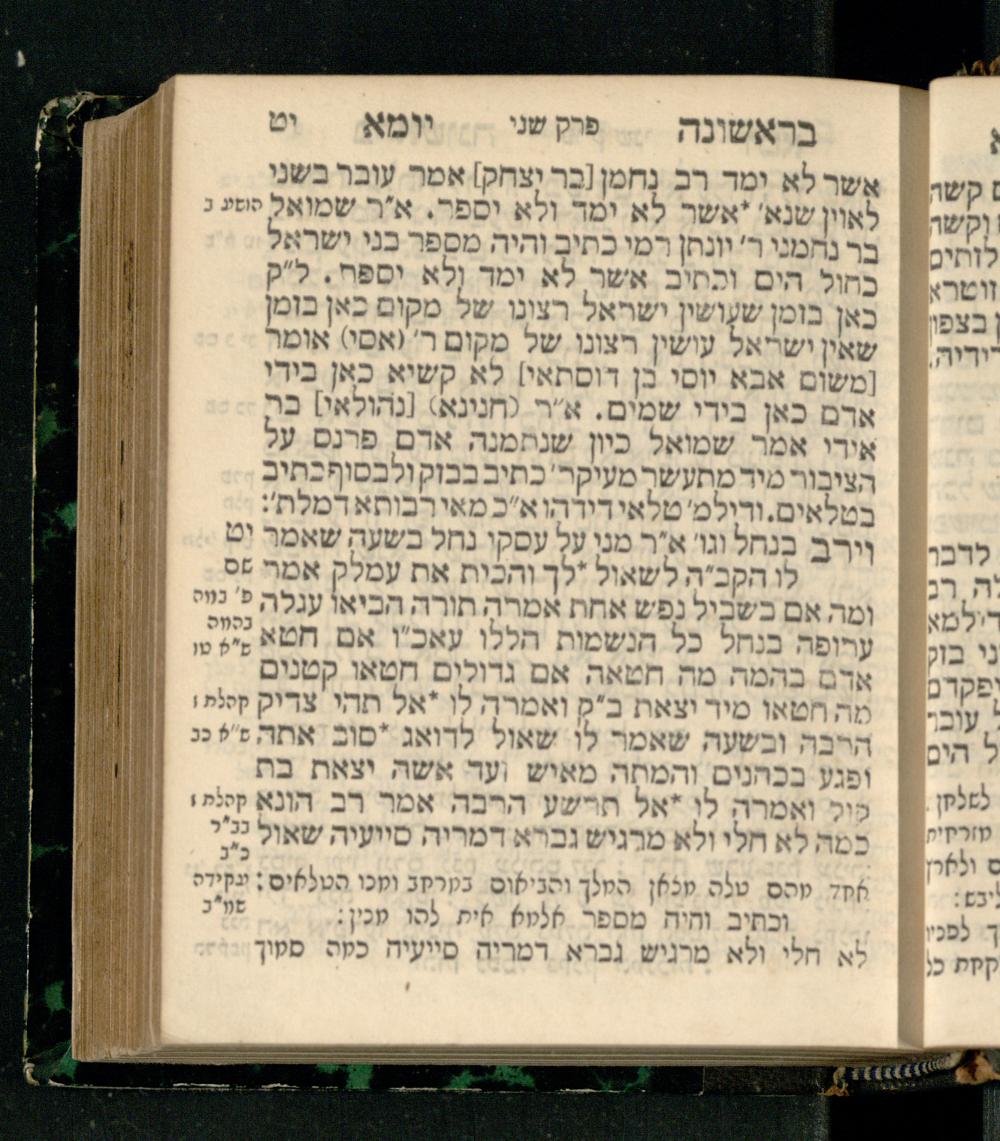 בראשונה פרק שני יומא יט
אשר לא ימד רב נחמן [בר יצחק] אמר עובר בשני
לאוין שנא' *אשר לא ימד ולא יספר. א"ר שמואל הושע ב
בר נחמני ר' יונתן רמי כתיב והיה מספר בני ישראל
כחול הים וכתיב אשר לא ימד ולא יספר. ל"ק
כאן בזמן שעושין ישראל רצונו של מקום כאן בזמן
שאין ישראל עושין רצונו של מקום ר' (אסי) אומר
[משום אבא יוסי בן דוסתאי] לא קשיא כאן בידי
אדם כאן בידי שמים. א"ר (חנינא) [נהולאי] בר
אידי אמר שמואל כיון שנתמנה אדם פרנס על
הציבור מיד מתעשר מעיקר' כתיב בבזק ולבסוף כתיב
בטלאים. ודילמ' טלאי דידהו א"כ מאי רבותא דמלת':
וירב בנחל וגו' א"ר מני על עסקי נחל בשעה שאמר יט
לו הקב"ה לשאול *לך והכית את עמלק אמר שם
ומה אם בשביל נפש אחת אמרה תורה הביאו עגלה פ' במה
ערופה בנחל כל הנשמות הללו עאכ"ו אם חטא בהמה
אדם בהמה מה חטאה אם גדולים חטאו קטנים ש"א טו
מה חטאו מיד יצאת ב"ק ואמרה לו *אל תהי צדיק קהלת ז
הרבה ובשעה שאמר לו שאול לדואג *סוב אתה ש"א כב
ופגע בכהנים והמתה מאיש ועד אשה יצאת בת
קול ואמרה לו *אל תרשע הרבה אמר רב הונא קהלת ז
כמה לא חלי ולא מרגיש גברא דמריה סייעיה שאול בב"ר
כ"ב
אחד מהם טלה מצאן המלך והביאום במרחב ומנו הטלאים: ועקידה
וכתיב והיה מספר אלמא אית להו מנין: שמ"ב
לא חלי ולא מרגיש גברא דמריה סייעיה כמה סמוך
ם קשה
וקשה
לותים
זוטרא
בצפון
דידיה,
לדבר
דילמא
ני בזק
יפקדם
עובר
ל הים